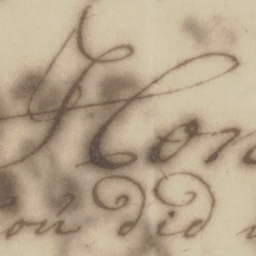 Hon
you did